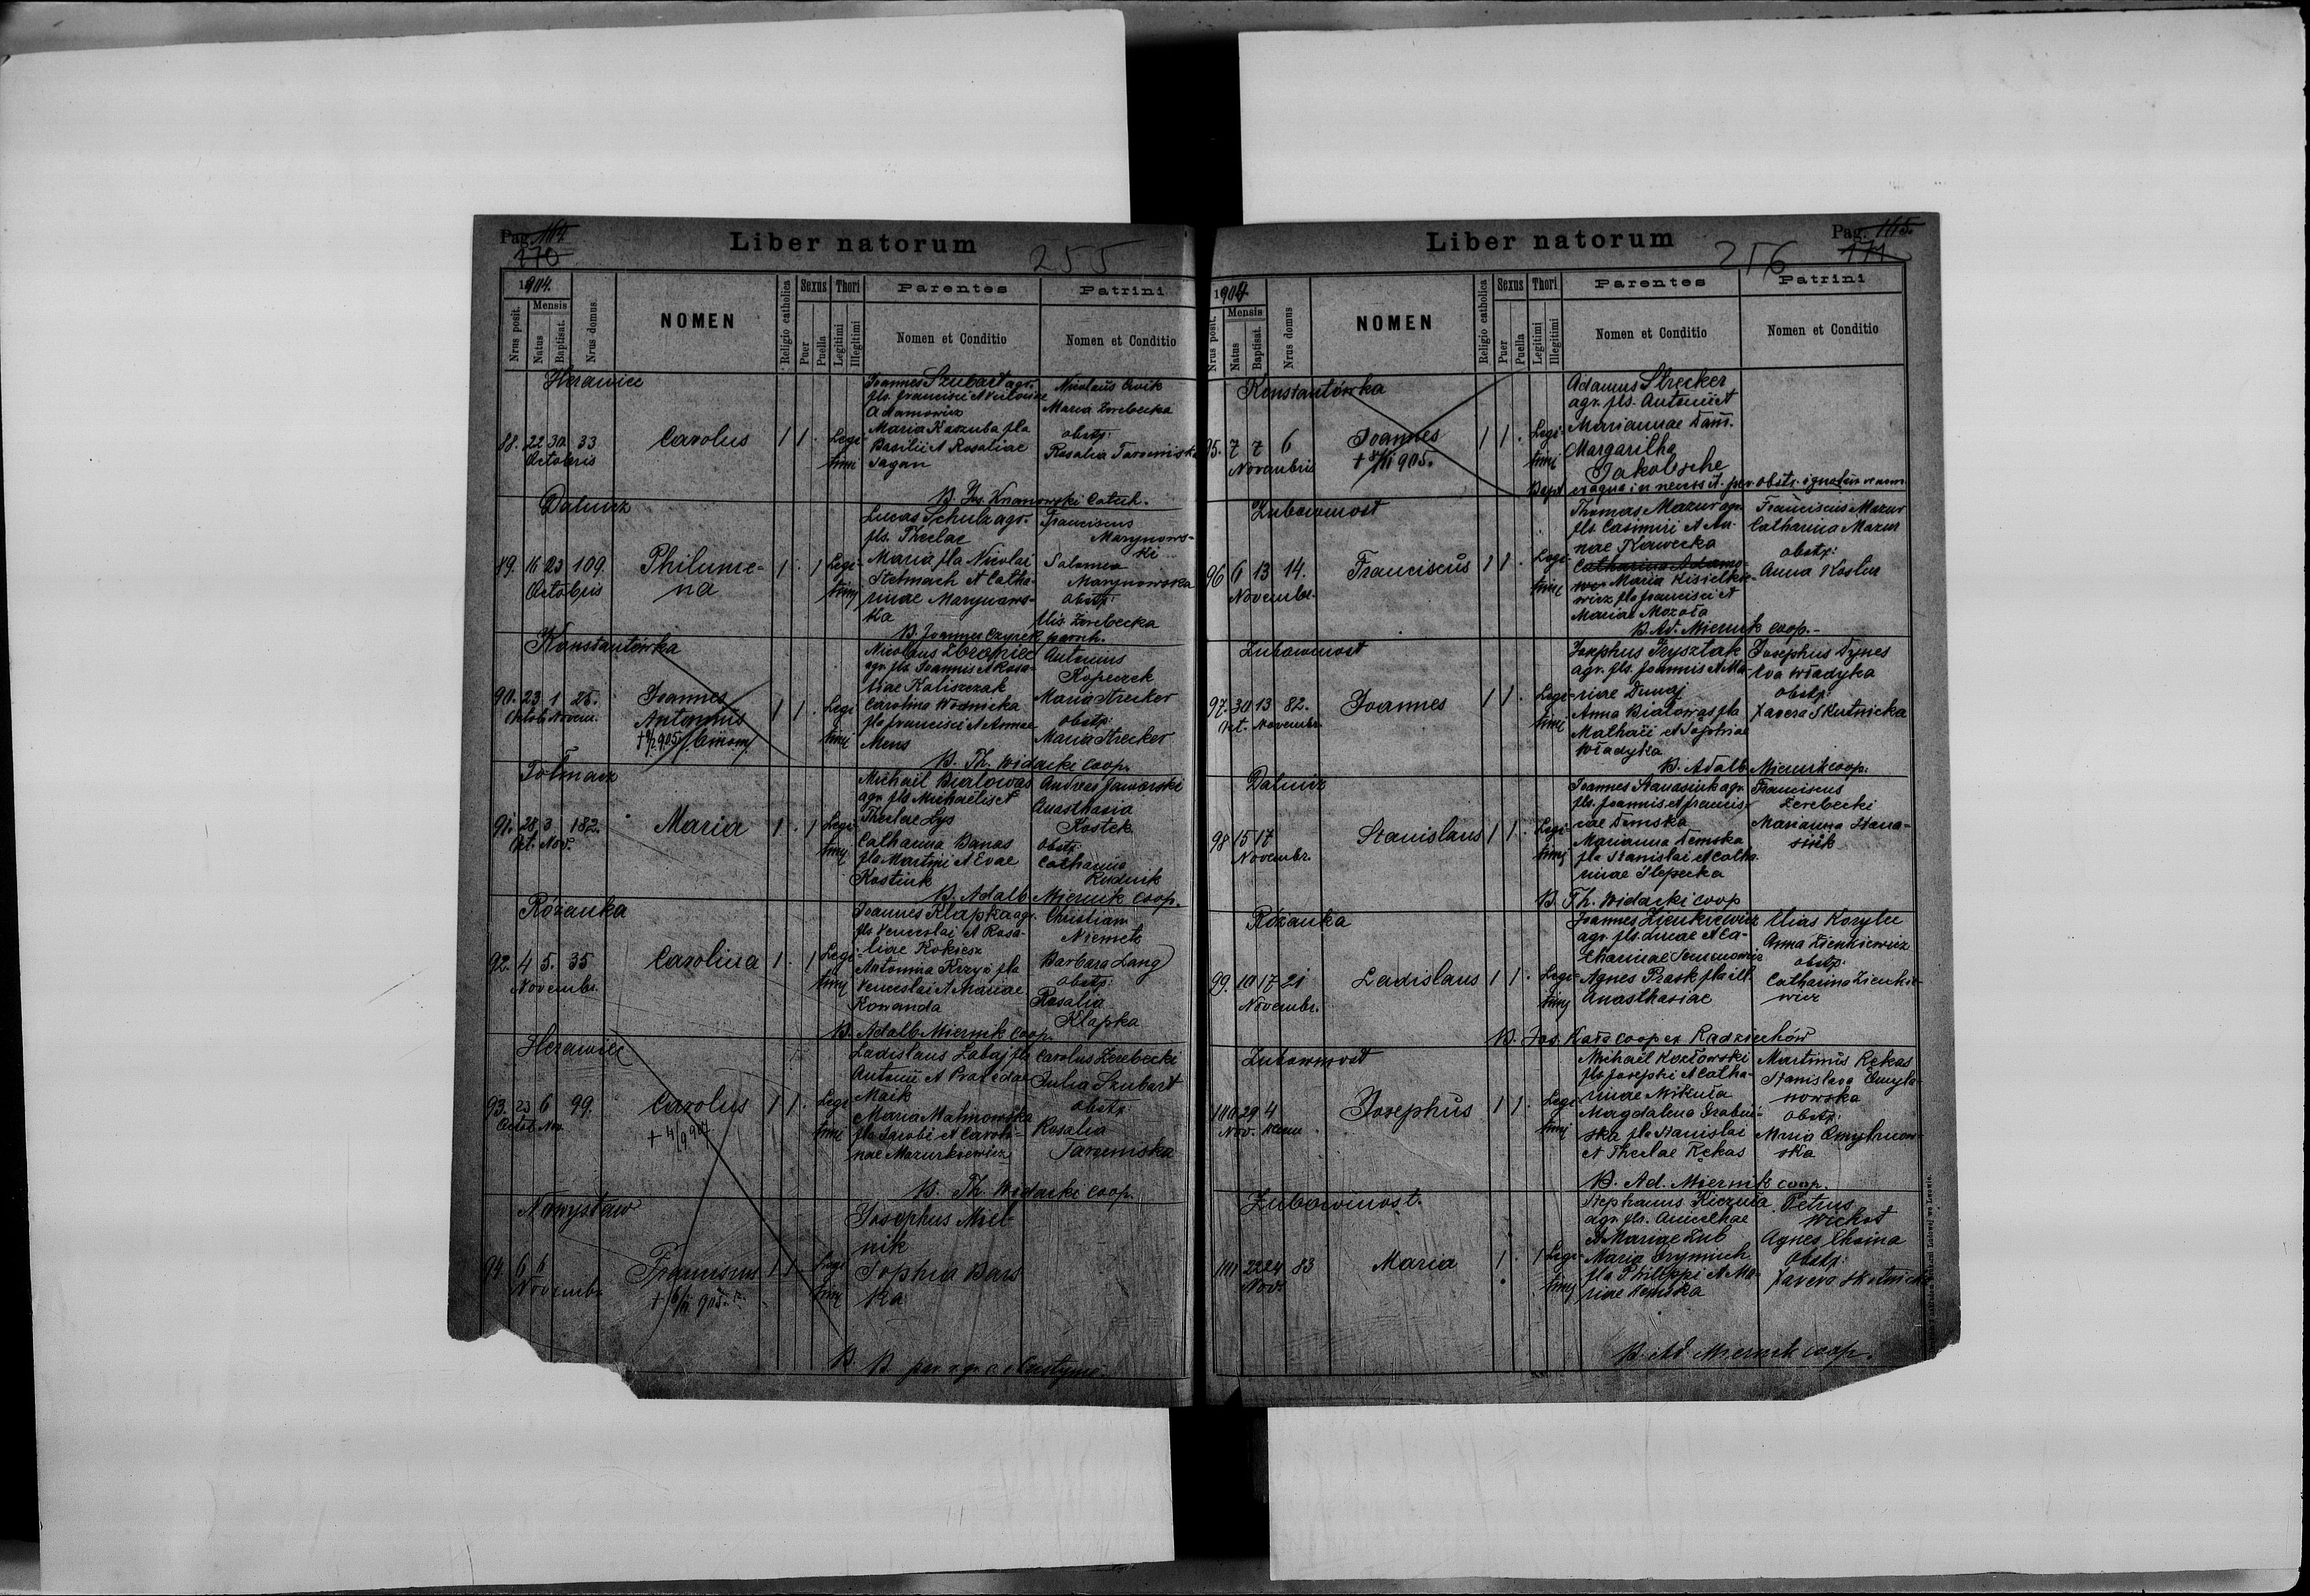 Pag. 164
170
Liber natorum
255
1904.
Mensis
Nrus posit.
Natus
Baptisat.
Nrus domus.
NOMEN
Religio catholica
Sexus
Puer
Puella
Thori
Legitimi
Illegitimi
Parentes
Nomen et Conditio
Patrini
Nomen et Conditio
Heranice
88. 22 30 33
Octobris
Carolus
1 1 .
Legi-
timi
Joannes Szubart agr.
fls. Francisci et
Adamowicz
Maria Kaszuba fla
Basilii et Rosaliae
Sagan
Nicolaus Cwik
Maria Zerebecka
obstp:
Rosalia
B. Jos. Catech.
Datnicz
89. 16 23 109.
Octobris
Philume-
na
1 . 1
Legi-
timi
Lucas Schulz agr.
fls. Theclae
Maria fla Nicolai
Stelmach et Catha-
rinae Marynows-
ka
Franciscus
Marynows-
ki
Salomea
Marynowska
obstp:
Zerebecka
B. Joannes Czyrek paroch.
Konstantówka
90. 23 1 25.
Octob. Novem.
Joannes
Antonius
1 1 .
Legi
timi
Nicolaus
agr. fls. Joannis et Rosa-
liae Kaliszczak
Carolina Wodnicka
fla Francisci et Annae
Mens
Antonius
Kopeczek
Maria Strecker
obstp:
Maria Strecker
B. Th. Widacki coop.
Tetmacz
91. 28 3 182.
Oct. Nov.
Maria
1 . 1
Legi-
timi
Michael Bialowas
agr. fls Michaelis et
Theclae Lys
Catharina Banas
fla Martini et Evae
Kostiuk
Andreas Jaworski
Anasthasia
Kostek
obstp:
Catharina
Rudnik
B. Adalb. Miernik coop.
Różanka
92. 4 5. 35
Novembr.
Carolina
1 . 1
Legi-
timi
Joannes Klapka agr.
fls Venceslai et Rosa-
liae Kokiesz
Antonina Krzyż fla
Venceslai et Mariae
Kowanda
Christian
Niemetz
Barbara Lang
obstp:
Rosalia
Klapka
B. Adalb. Miernik coop.
Heranice
93. 23 6 99.
Octob. Nov.
Carolus
1 1 .
Legi
timi
Ladislaus Labaj fls
Antonii et Praxedae
Maik
Maria Malinowska
fla Jacobi et Caroli-
nae Mazurkiewicz
Carolus Zerebecki
Julia Szubart
obstp.
Rosalia
B. Th. Widacki coop.
Nowystaw
94. 6 6
Novembr.
Franciscus
1 1 .
Legi
timi
Josephus Miel-
nik
Sophia Bars
ka
B.
Liber natorum
256
Pag. 165.
171
1904
Mensis
Nrus posit.
Natus
Baptisat.
Nrus domus
NOMEN
Religio catholica
Sexus
Puer
Puella
Thori
Legitimi
Illegitimi
Parentes
Nomen et Conditio
Patrini
Nomen et Conditio
Konstantówka
95. 7 7 6
Novembris
Joannes
1 1 .
Legi-
timi
Adamus Strecker
agr. fls. Antonii et
Mariannae Dam.
Margaritha
Jakolsche
Bapt ex aqua in necess. per obstr.
Zubowmost
96 6 13 14.
Novembr.
Franciscus
1 1 .
Legi-
timi
Thomas Mazur agr.
fls. Casimiri et An-
nae Kawecka
Catharina Adamo-
Maria Kisielke-
wicz fla Francisci et
Mariae Mozoła
Franciscus Mazur
Catharina Mazur
obstp:
Anna Koslur
B. Ad. Miernik coop.
Zubowmost
97. 30 13 82.
Oct. Novembr.
Joannes
1 1 .
Legi-
timi
Josephus Trysztak
agr. fls. Joannis et Ma-
riae Dunaj
Anna Białowąs fla
Mathaei et Sophiae
Władyka
Josephus Dynes
Eva Władyka
obstp:
Xavera Skutnicka
B. Adalb. Miernik coop.
Datnicz
98 15 17
Novembr.
Stanislaus
1 1 .
Legi-
timi
Joannes Stanasiuk agr
fls. Joannis et Francis-
cae Demska
Marianna Demska
fla Stanislai et Catha
rinae Slepecka
Franciscus
Zerebecki
Marianna Stana-
siuk
B. Th. Widacki coop
Różanka
99. 10 17 21
Novembr.
Ladislaus
1 1 .
Legi-
timi
Joannes Zienkiewicz
agr. fls. Lucae et Ca-
tharinae
Agnes Prask fla ill.
Anasthasiae
Elias Koryluc
Anna Zienkiewicz
obstp:
Catharina Zienkie-
wicz
B. Jos. Kata coop ex Radziechów
Zubowmost
100 29 4
Nov. Decem.
Josephus
1 1 .
Legi-
timi
Michael Kozłowski
fls. Josephi et Catha-
rinae Mikuła
Magdalena Grabin-
ska fla Stanislai
et Theclae Rękas
Martinus Rękas
Stanislava Cmyla-
nowska
obstp:
Maria
ska
B. Ad. Miernik coop.
Zubowmost.
101 22 24 83
Nov.
Maria
1 . 1
Legi-
timi
Stephanus Kiczuła
agr. fls.
et Mariae Zub
Maria Frymuch
fla Philippi et Ma-
riae Demska
Petrus
Wichot
Agnes Choina
obstp:
Xavera
B. Ad. Miernik coop.